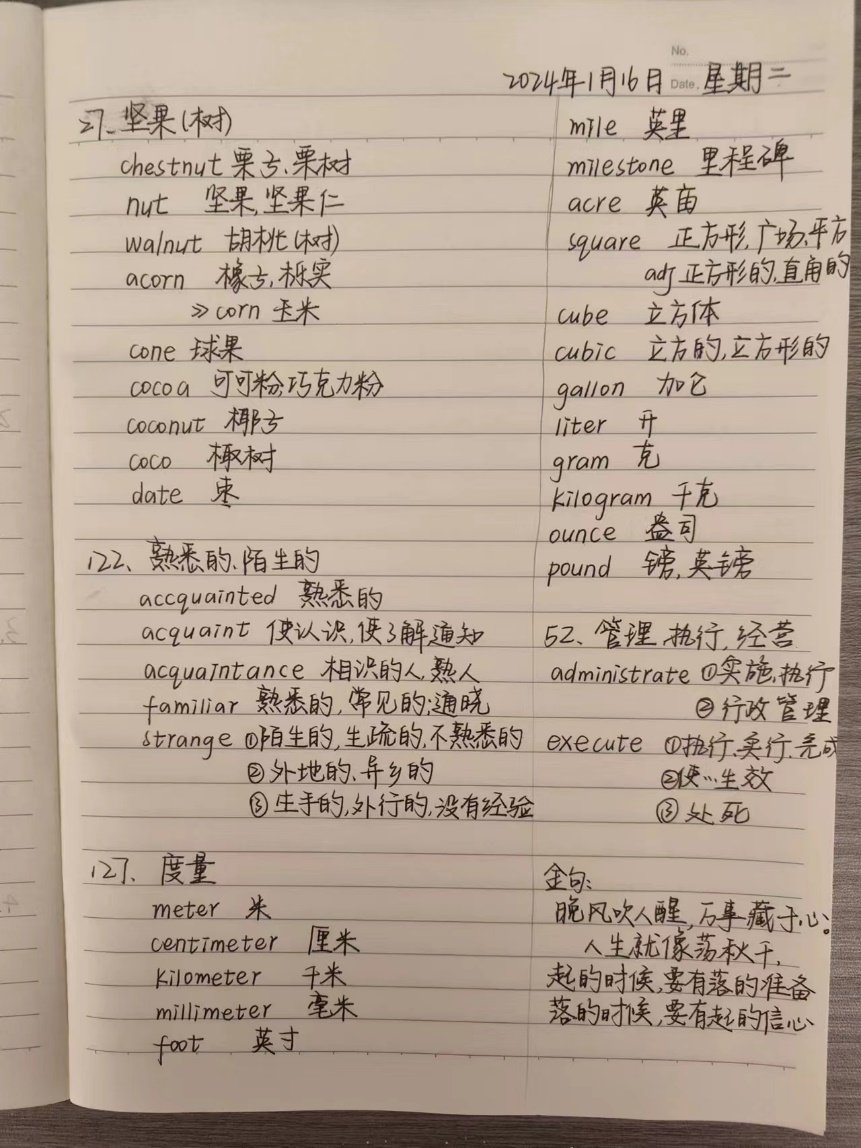 No.
Date.
2024年1月16日 星期二
27、坚果(树)
chestnut 栗子、栗树
nut 坚果,坚果仁
walnut 胡桃(树)
acorn 橡子、栎实
≫corn 玉米
cone 球果
cocoa 可可粉,巧克力粉
coconut 椰子
coco 椰树
date 枣
122、熟悉的、陌生的
accquainted 熟悉的
acquaint 使认识,使了解通知
acquaintance 相识的人,熟人
familiar 熟悉的,常见的;通晓
strange ①陌生的,生疏的,不熟悉的
②外地的、异乡的
③生手的,外行的,没有经验
127、度量
meter 米
centimeter 厘米
kilometer 千米
millimeter 毫米
foot 英寸
mile 英里
milestone 里程碑
acre 英亩
square 正方形,广场,平方
adj 正方形的,直角的
cube 立方体
cubic 立方的,立方形的
gallon 加仑
liter 升
gram 克
kilogram 千克
ounce 盎司
pound 镑,英镑
52、管理,执行,经营
administrate ①实施,执行
②行政管理
execute ①执行、实行、完成
②使…生效
③处死
金句:
晚风吹人醒,万事藏于心。
人生就像荡秋千,
起的时候,要有落的准备
落的时候,要有起的信心